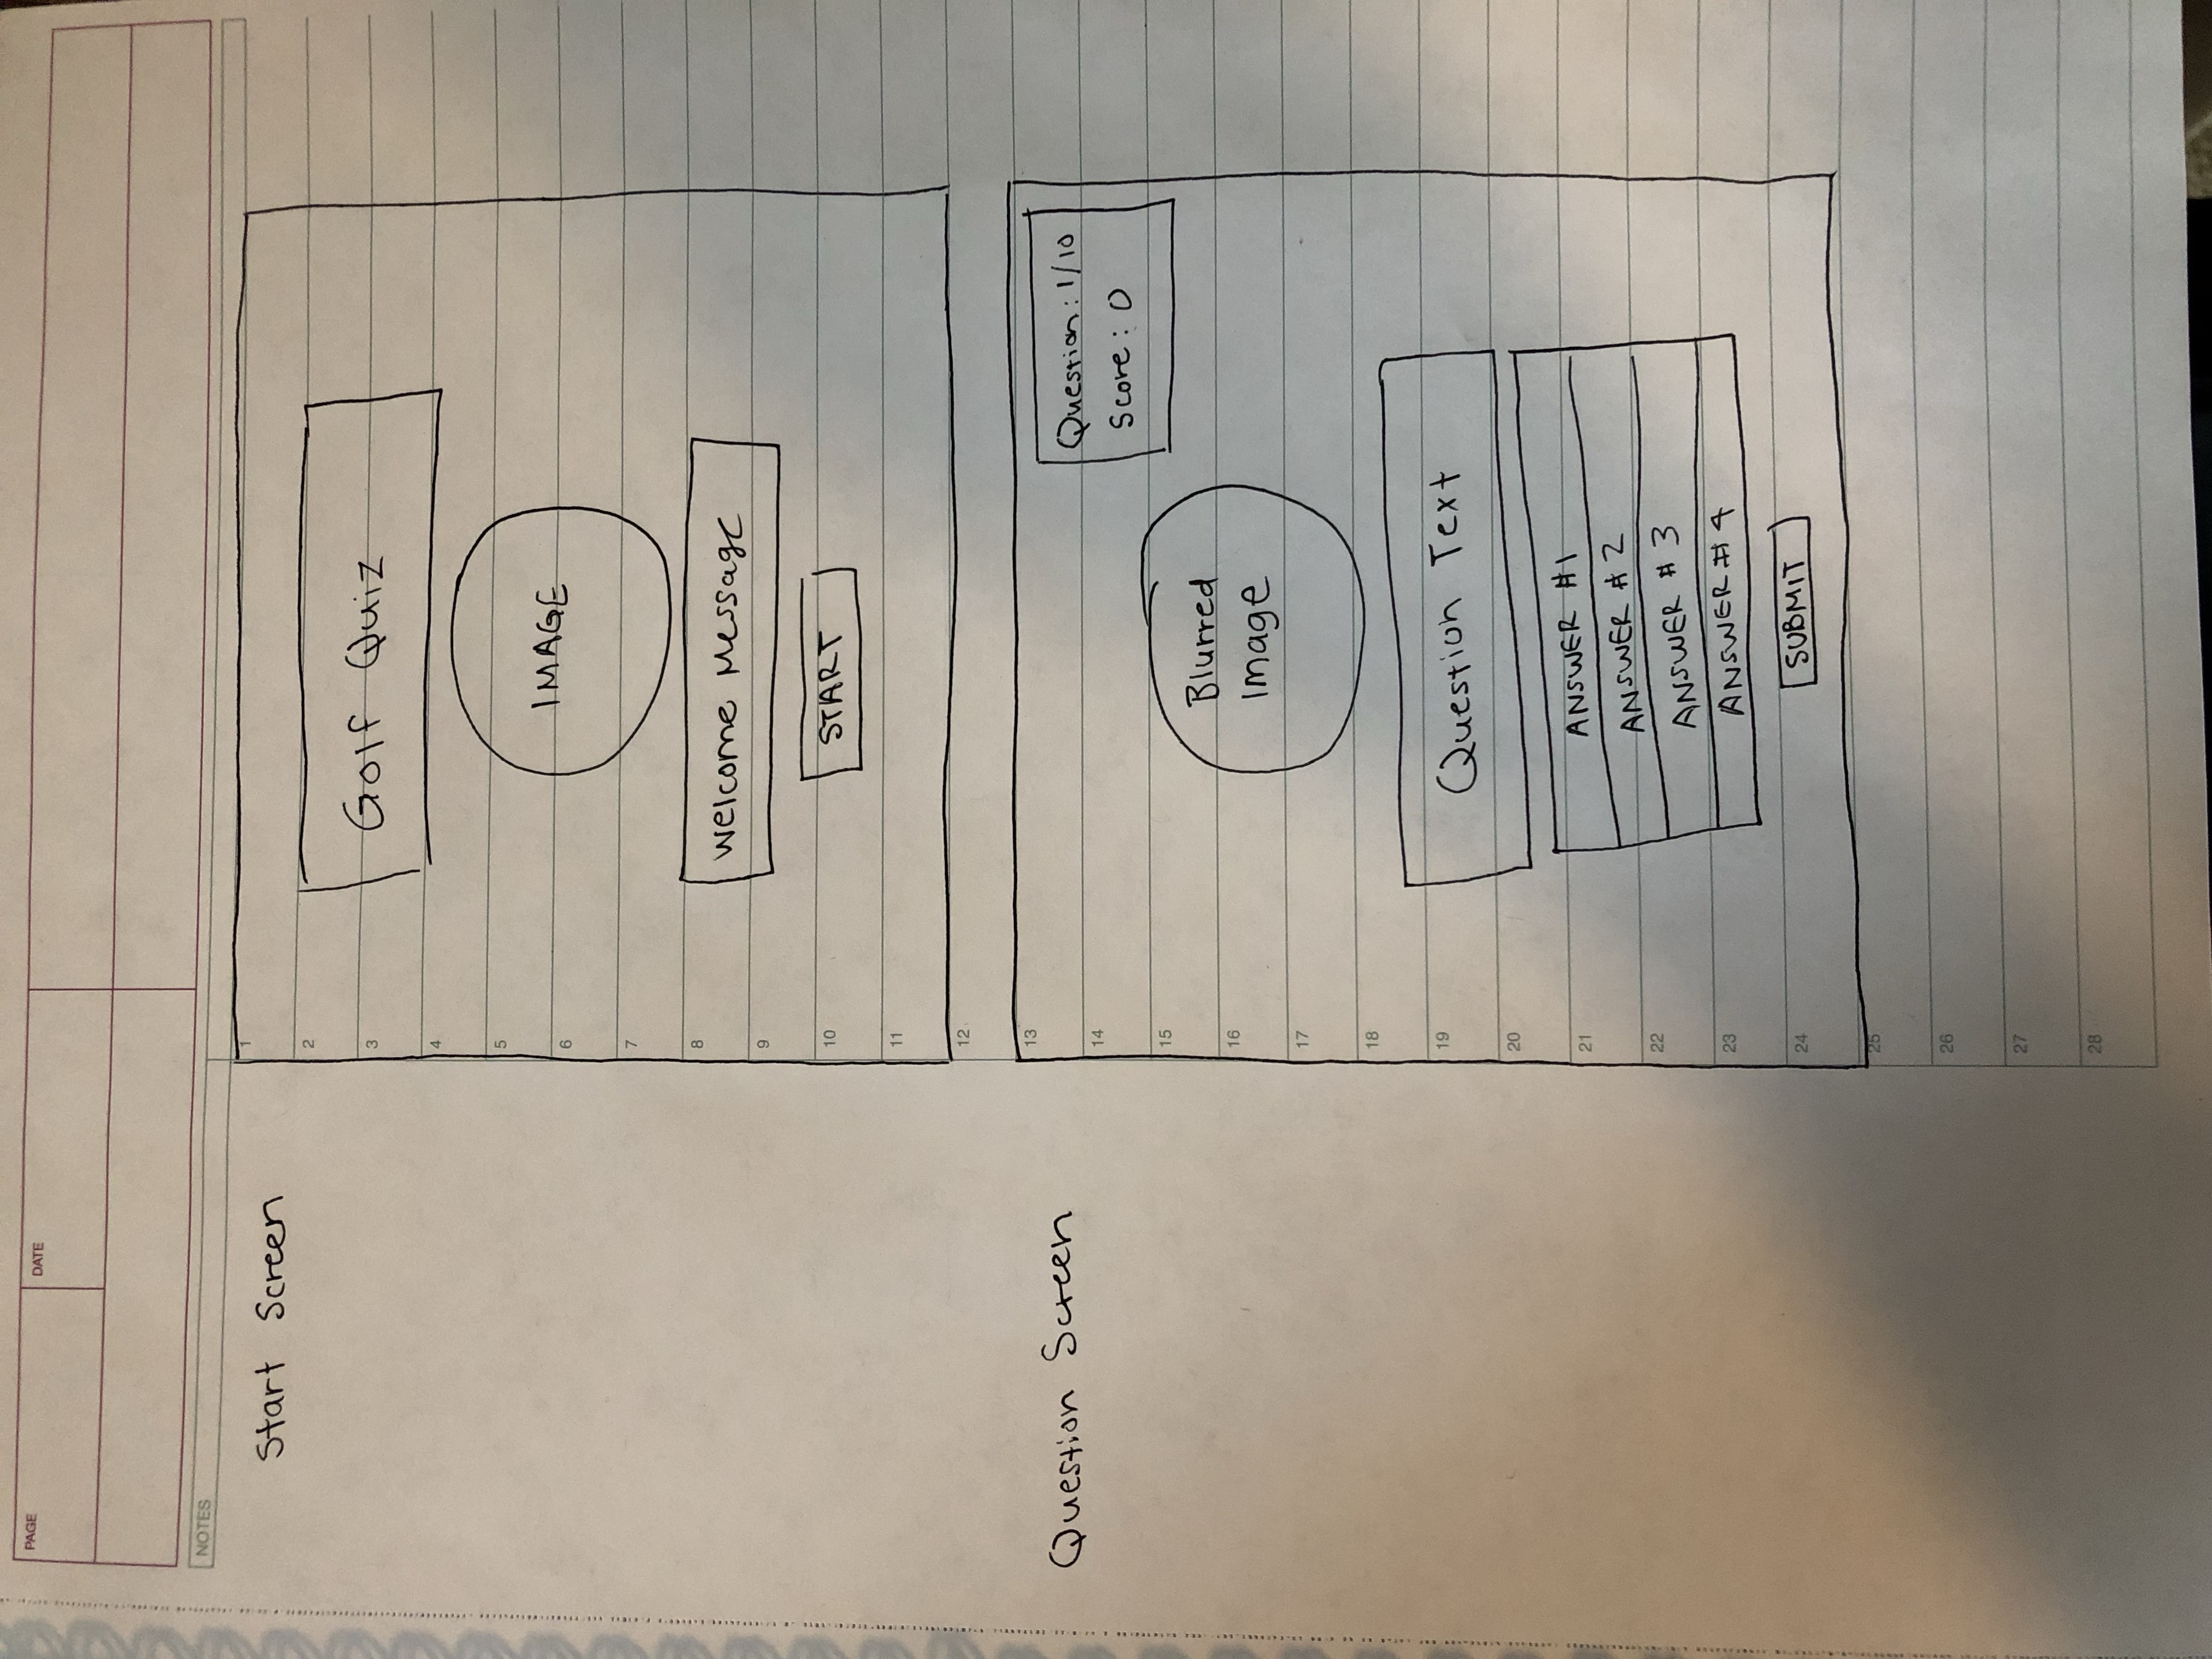 PAGE
DATE
NOTES
Start Screen
1
2
Golf Quiz
3
4
5
IMAGE
6
7
8
Welcome Message
9
START
10
11
12
13
Question Screen
Question: 1/10
14
Score: 0
15
Blurred
16
Image
17
18
19
Question Text
20
ANSWER #1
21
ANSWER #2
22
ANSWER #3
23
ANSWER #4
SUBMIT
24
25
26
27
28